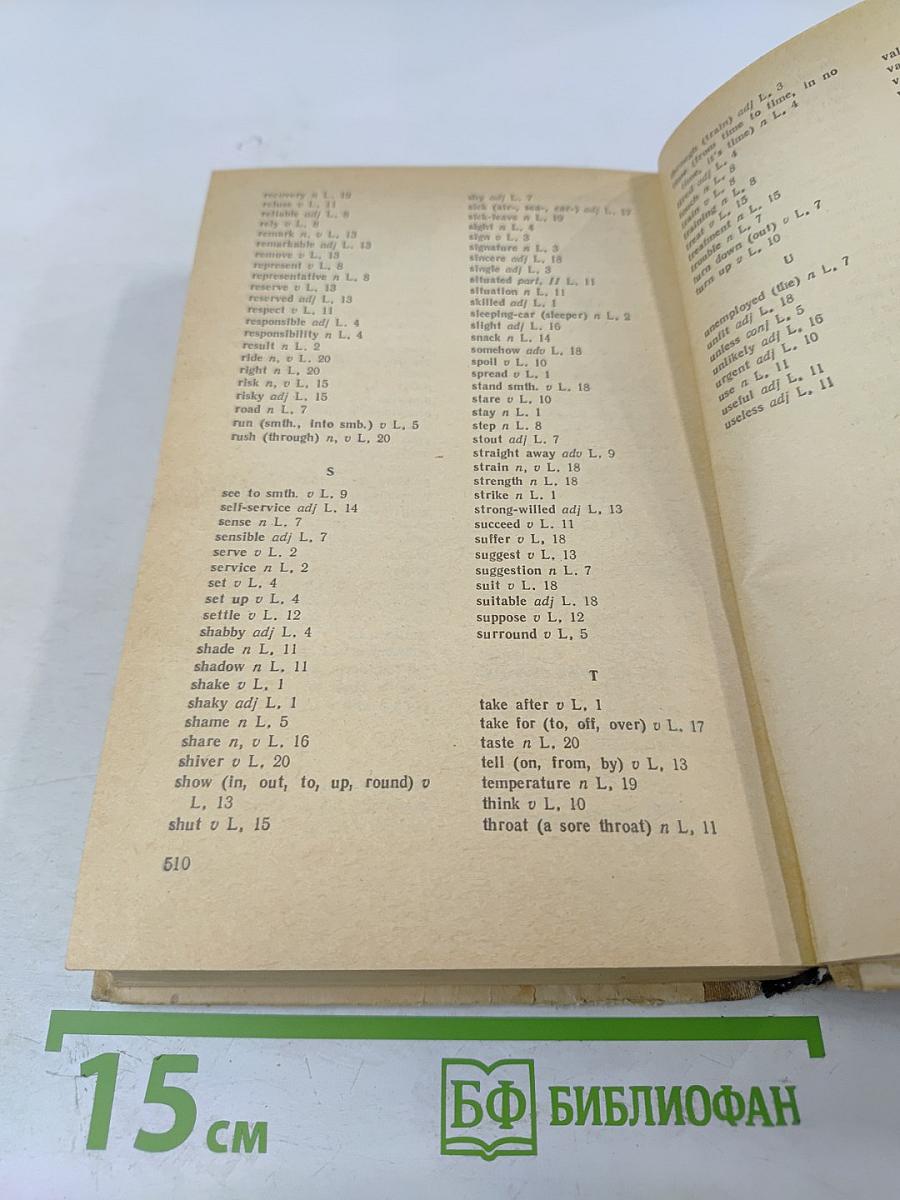 recovery n L. 19
refuse v L. 11
reliable adj L. 8
rely v L. 8
remark n, v L. 13
remarkable adj L. 13
remove v L. 13
represent v L. 8
representative n L. 8
reserve v L. 13
reserved adj L. 13
respect v L. 11
responsible adj L. 4
responsibility n L. 4
result n L. 2
ride n, v L. 20
right n L. 20
risk n, v L. 15
risky adj L. 15
road n L. 7
run (smth., into smb.) v L. 5
rush (through) n, v L. 20
S
see to smth. v L. 9
self-service adj L. 14
sense n L. 7
sensible adj L. 7
serve v L. 2
service n L. 2
set v L. 4
set up v L. 4
settle v L. 12
shabby adj L. 4
shade n L. 11
shadow n L. 11
shake v L. 1
shaky adj L. 1
shame n L. 5
share n, v L. 16
shiver v L. 20
show (in, out, to, up, round) v
L. 13
shut v L. 15
510
shy adj L. 7
sick (air-, sea-, car-) adj L. 17
sick-leave n L. 19
sight n L. 4
sign v L. 3
signature n L. 3
sincere adj L. 18
single adj L. 3
situated part. II L. 11
situation n L. 11
skilled adj L. 1
sleeping-car (sleeper) n L. 2
slight adj L. 16
snack n L. 14
somehow adv L. 18
spoil v L. 10
spread v L. 1
stand smth. v L. 18
stare v L. 10
stay n L. 1
step n L. 8
stout adj L. 7
straight away adv L. 9
strain n, v L. 18
strength n L. 18
strike n L. 1
strong-willed adj L. 13
succeed v L. 11
suffer v L. 18
suggest v L. 13
suggestion n L. 7
suit v L. 18
suitable adj L. 18
suppose v L. 12
surround v L. 5
T
take after v L. 1
take for (to, off, over) v L. 17
taste n L. 20
tell (on, from, by) v L. 13
temperature n L. 19
think v L. 10
throat (a sore throat) n L. 11
through (train) adj L. 3
(from time to time, in no
time, it's time) n L. 4
tired adj L. 4
touch n L. 8
train v L. 8
training n L. 8
treat v L. 15
treatment n L. 15
trouble n L. 7
turn down (out) v L. 7
turn up v L. 10
U
unemployed (the) n L. 7
unfit adj L. 18
unless conj L. 5
unlikely adj L. 16
urgent adj L. 10
use n L. 11
useful adj L. 11
useless adj L. 11
15 см
БФ БИБЛИОФАН